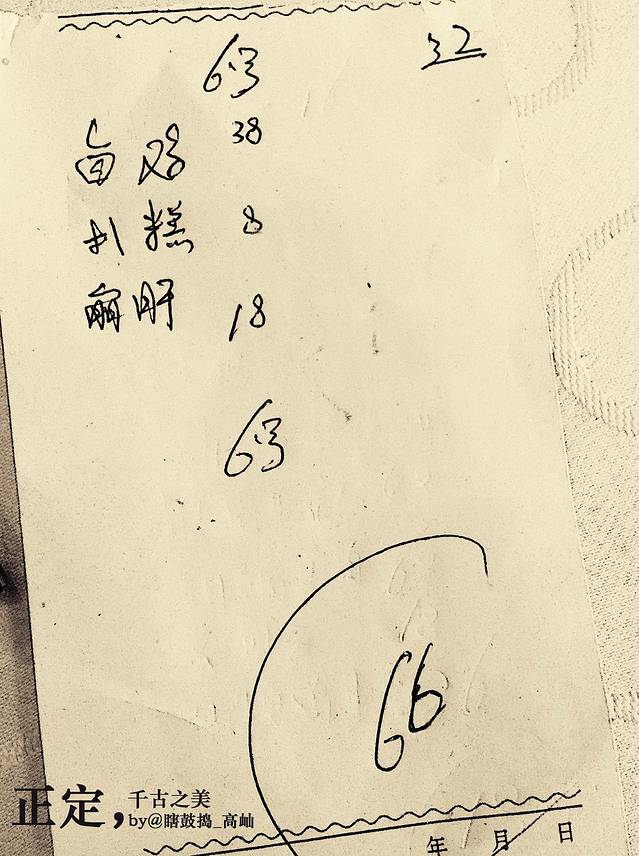 32
6号
卤鸡 38
扒糕 8
崩肝 18
6号
66
年 月 日
正定，
千古之美
by@瞎鼓捣_高屾